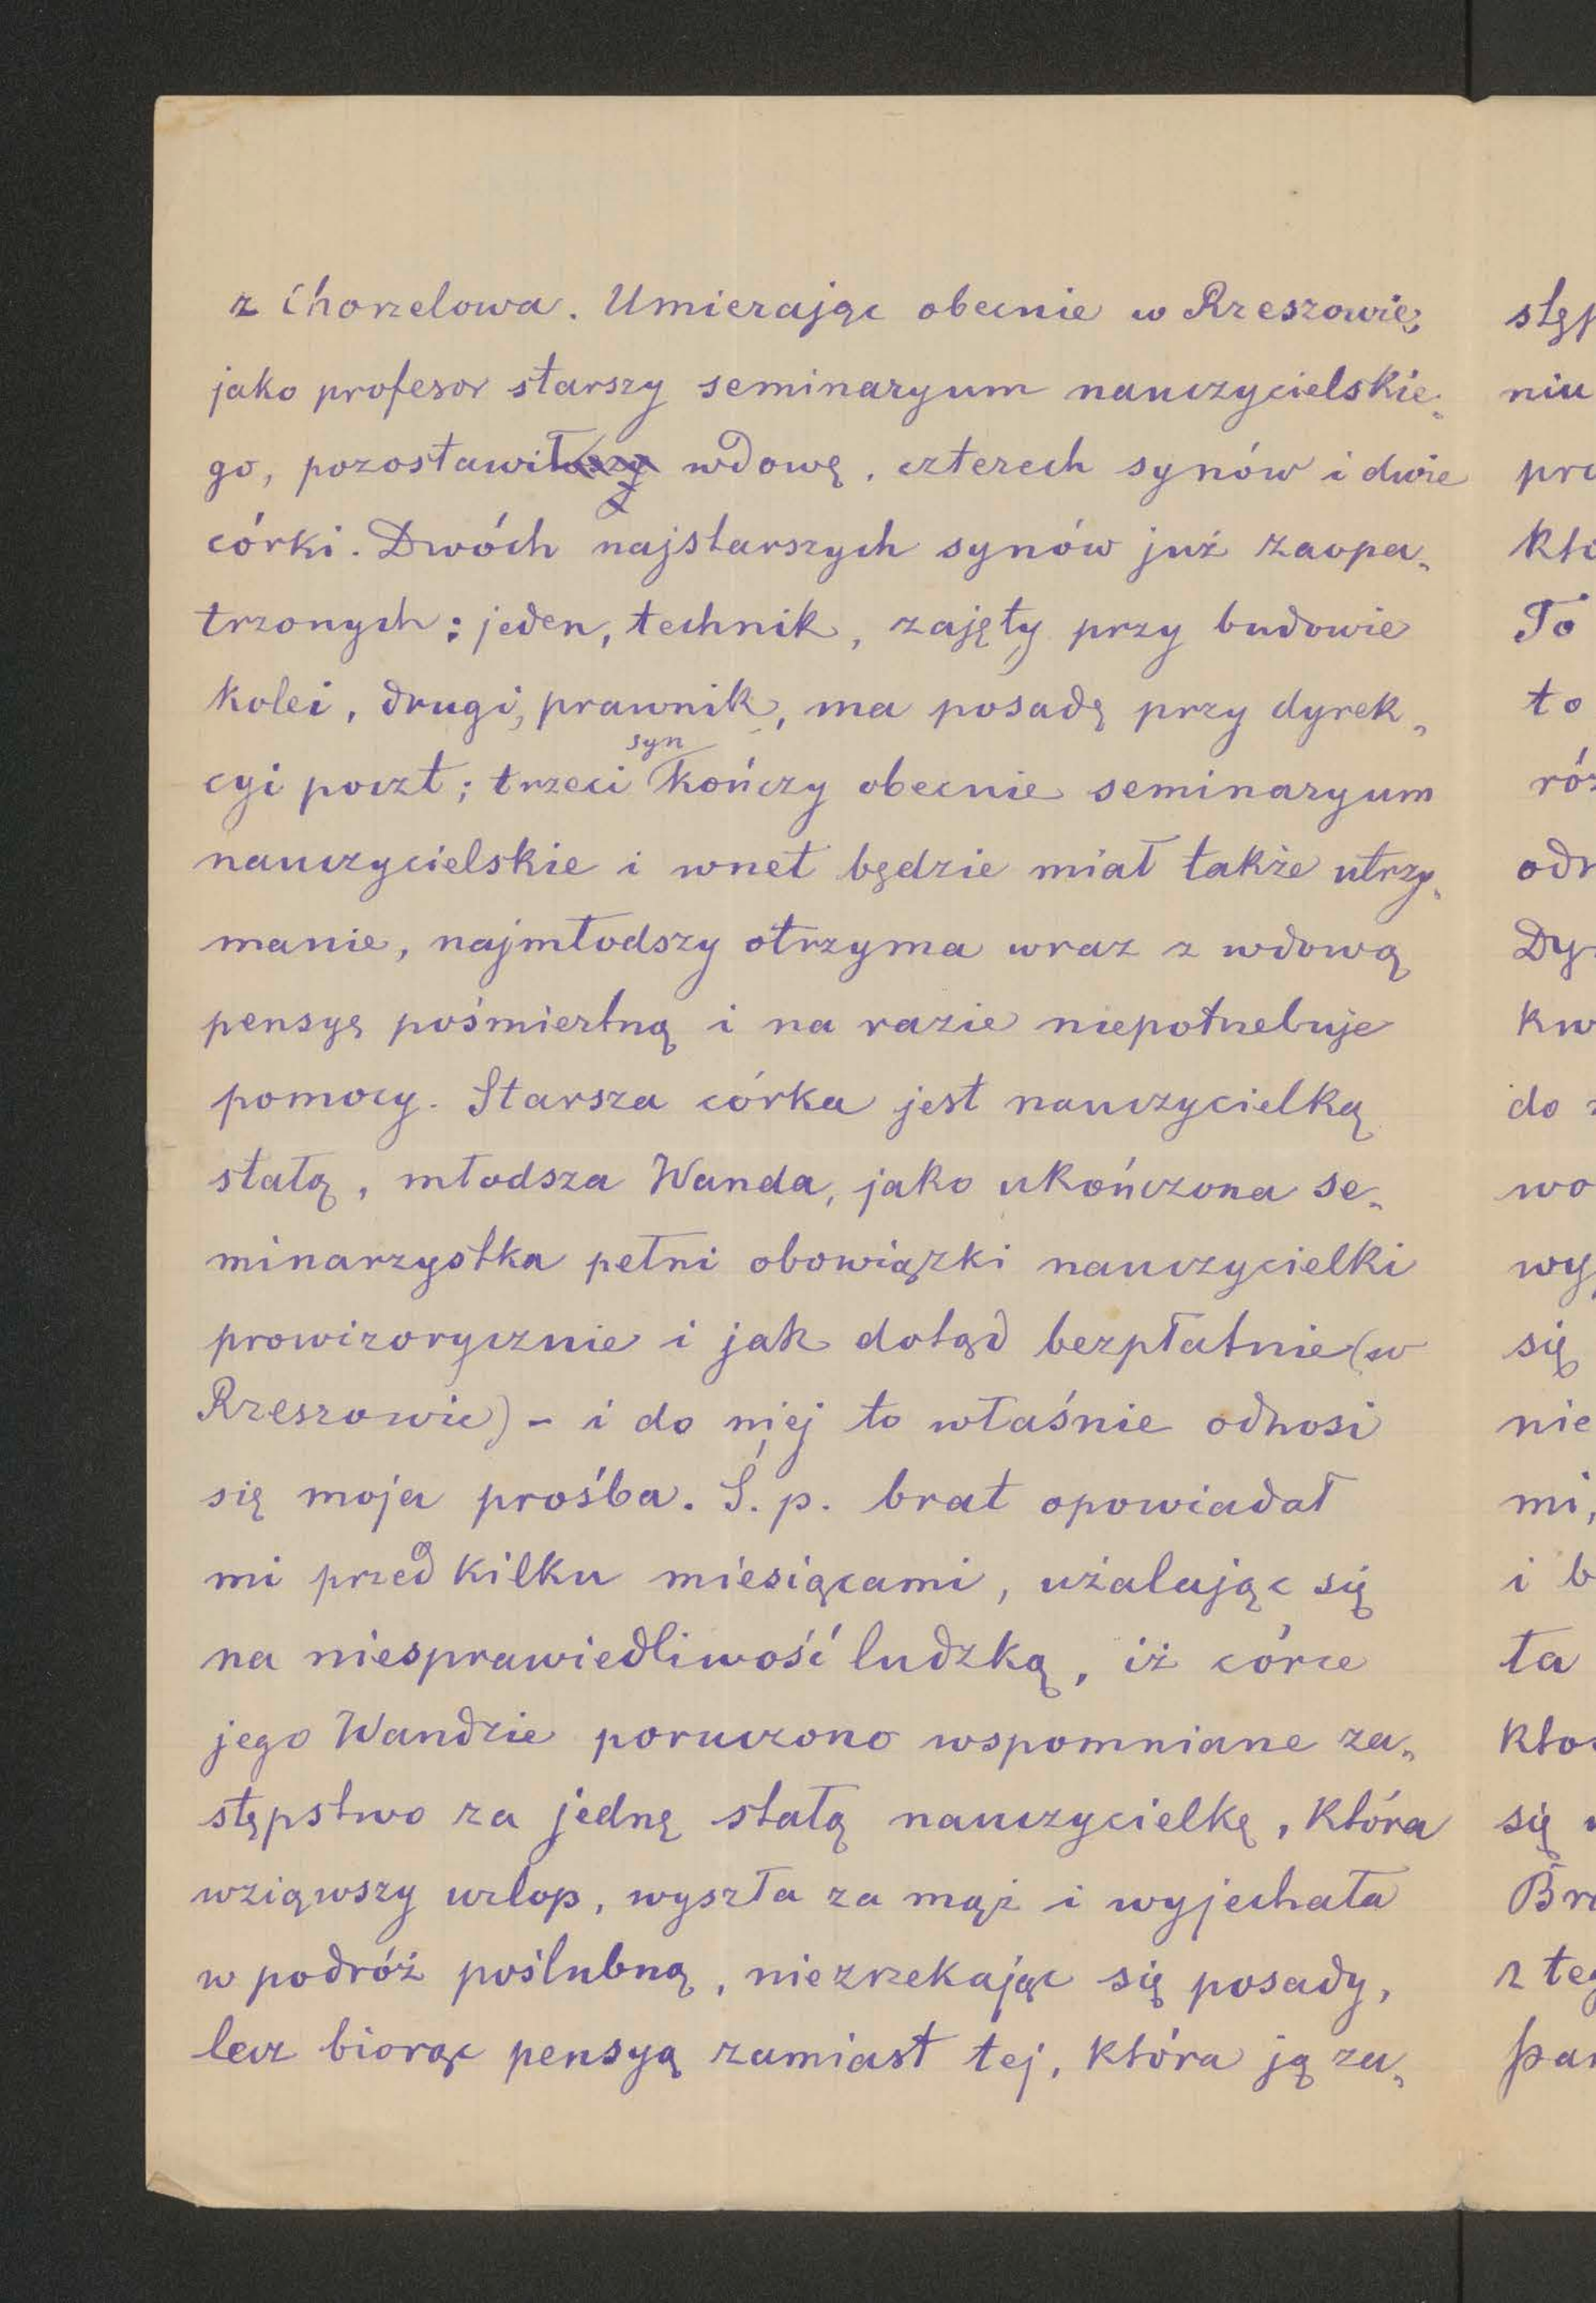 z Chorzelowa. Umierając obecnie w Rzeszowie,
jako profesor starszy seminaryum nauczycielskie„
go, pozostawił wdowę, czterech synów i dwie
córki. Dwóch najstarszych synów już zaopa„
trzonych: jeden, technik, zajęty przy budowie
kolei, drugi, prawnik, ma posadę przy dyrek„
cyi poczt; trzeci syn kończy obecnie seminaryum
nauczycielskie i wnet będzie miał także utrzy„
manie, najmłodszy otrzyma wraz z wdową
pensyę pośmiertną i na razie niepotrzebuje
pomocy. Starsza córka jest nauczycielką
stałą, młodsza Wanda, jako ukończona se„
minarzystka pełni obowiązki nauczycielki
prowizorycznie i jak dotąd bezpłatnie (w
Rzeszowie) – i do niej to właśnie odnosi
się moja prośba. Ś. p. brat opowiadał
mi przed kilku miesiącami, użalając się
na niesprawiedliwość ludzką, iż córce
jego Wandzie poruczono wspomniane za„
stępstwo za jedną stałą nauczycielkę, która
wziąwszy urlop, wyszła za mąż i wyjechała
w podróż poślubną, niezrzekając się posady,
lecz biorąc pensyą zamiast tej, która ją za„